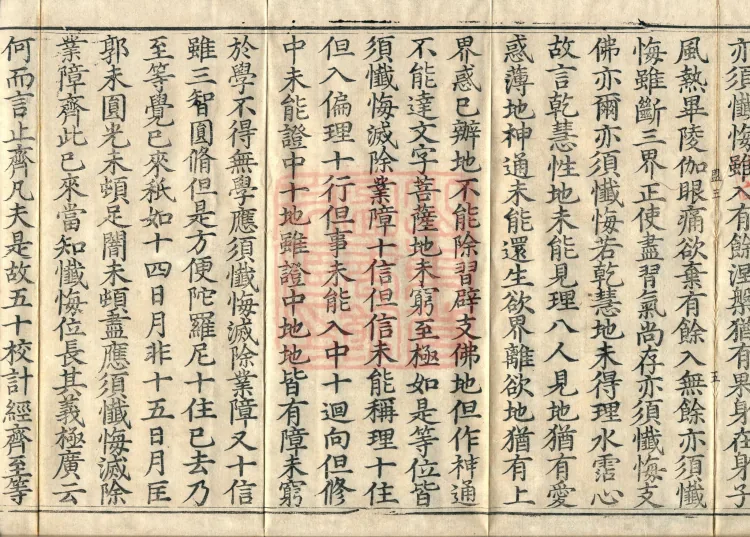 亦須懺悔雖入有餘涅槃猶有果身在身子
風熱畢陵伽眼痛欲棄有餘入無餘亦須懺
悔雖斷三界正使盡習氣尚存亦須懺悔支
佛亦爾亦須懺悔若乾慧地未得理水霑心
故言乾慧性地未能見理八人見地猶有愛
惑薄地神通未能還生欲界離欲地猶有上
界惑已辦地不能除習辟支佛地但作神通
不能達文字菩薩地未窮至極如是等位皆
須懺悔滅除業障十信但信未能稱理十住
但入偏理十行但事未能入中十迴向但修
中未能證中十地雖證中地地皆有障未窮
於學不得無學應須懺悔滅除業障又十信
雖三智圓脩但是方便陀羅尼十住已去乃
至等覺已來秖如十四日月非十五日月匡
郭未圓光未頓足闇未頓盡應須懺悔滅除
業障齊此已來當知懺悔位長其義極廣云
何而言止齊凡夫是故五十校計經齊至等